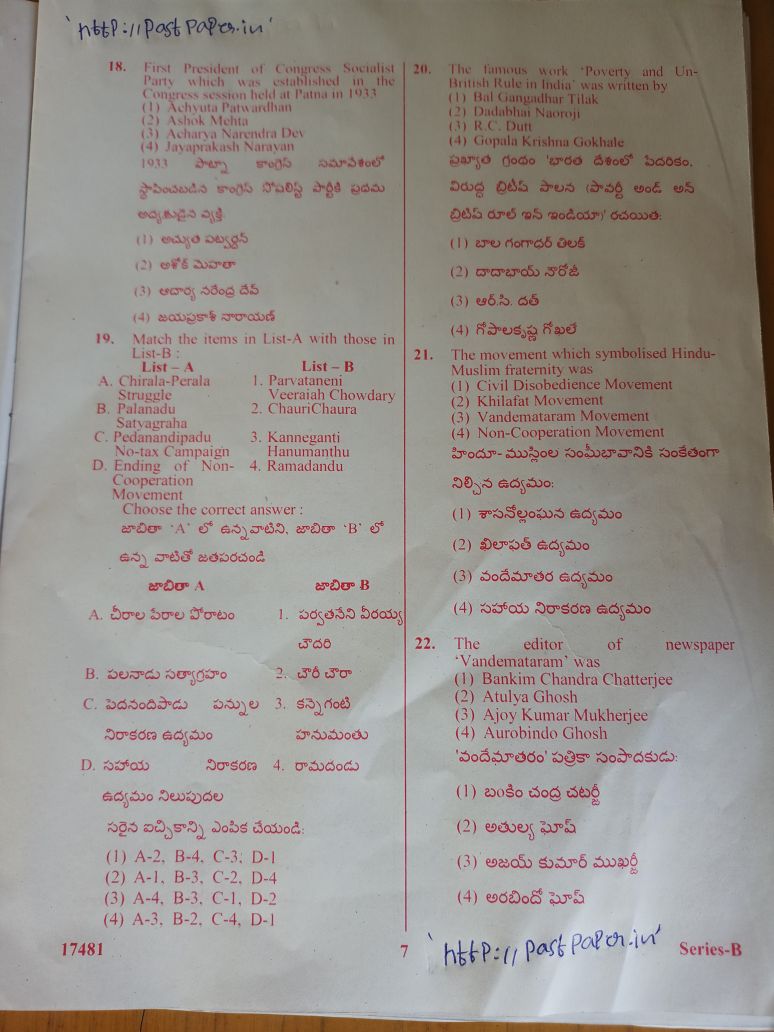 'http://PastPaper.in'
18. First President of Congress Socialist
Party which was established in the
Congress session held at Patna in 1933
(1) Achyuta Patwardhan
(2) Ashok Mehta
(3) Acharya Narendra Dev
(4) Jayaprakash Narayan
1933 పాట్నా కాంగ్రెస్ సమావేశంలో
స్థాపించబడిన కాంగ్రెస్ సోషలిస్ట్ పార్టీకి ప్రథమ
అధ్యక్షుడైన వ్యక్తి:
(1) అచ్యుత పట్వర్ధన్
(2) అశోక్ మెహతా
(3) ఆచార్య నరేంద్ర దేవ్
(4) జయప్రకాశ్ నారాయణ్
19. Match the items in List-A with those in
List-B :
List – A List – B
A. Chirala-Perala 1. Parvataneni
Struggle Veeraiah Chowdary
B. Palanadu 2. ChauriChaura
Satyagraha
C. Pedanandipadu 3. Kanneganti
No-tax Campaign Hanumanthu
D. Ending of Non- 4. Ramadandu
Cooperation
Movement
Choose the correct answer :
జాబితా 'A' లో ఉన్నవాటిని, జాబితా 'B' లో
ఉన్న వాటితో జతపరచండి
జాబితా A జాబితా B
A. చీరాల పేరాల పోరాటం 1. పర్వతనేని వీరయ్య
చౌదరి
B. పలనాడు సత్యాగ్రహం 2. చౌరీ చౌరా
C. పెదనందిపాడు పన్నుల 3. కన్నెగంటి
నిరాకరణ ఉద్యమం హనుమంతు
D. సహాయ నిరాకరణ 4. రామదండు
ఉద్యమం నిలుపుదల
సరైన ఐచ్ఛికాన్ని ఎంపిక చేయండి:
(1) A-2, B-4, C-3, D-1
(2) A-1, B-3, C-2, D-4
(3) A-4, B-3, C-1, D-2
(4) A-3, B-2, C-4, D-1
20. The famous work 'Poverty and Un-
British Rule in India' was written by
(1) Bal Gangadhar Tilak
(2) Dadabhai Naoroji
(3) R.C. Dutt
(4) Gopala Krishna Gokhale
ప్రఖ్యాత గ్రంథం 'భారత దేశంలో పేదరికం,
విరుద్ధ బ్రిటిష్ పాలన (పావర్టీ అండ్ అన్
బ్రిటిష్ రూల్ ఇన్ ఇండియా)' రచయిత:
(1) బాల గంగాధర్ తిలక్
(2) దాదాభాయ్ నౌరోజీ
(3) ఆర్.సి. దత్
(4) గోపాలకృష్ణ గోఖలే
21. The movement which symbolised Hindu-
Muslim fraternity was
(1) Civil Disobedience Movement
(2) Khilafat Movement
(3) Vandemataram Movement
(4) Non-Cooperation Movement
హిందూ- ముస్లింల సంఘీభావానికి సంకేతంగా
నిల్చిన ఉద్యమం:
(1) శాసనోల్లంఘన ఉద్యమం
(2) ఖిలాఫత్ ఉద్యమం
(3) వందేమాతర ఉద్యమం
(4) సహాయ నిరాకరణ ఉద్యమం
22. The editor of newspaper
'Vandemataram' was
(1) Bankim Chandra Chatterjee
(2) Atulya Ghosh
(3) Ajoy Kumar Mukherjee
(4) Aurobindo Ghosh
'వందేమాతరం' పత్రికా సంపాదకుడు:
(1) బంకిం చంద్ర చటర్జీ
(2) అతుల్య ఘోష్
(3) అజయ్ కుమార్ ముఖర్జీ
(4) అరబిందో ఘోష్
17481 7 'http://PastPaper.in' Series-B